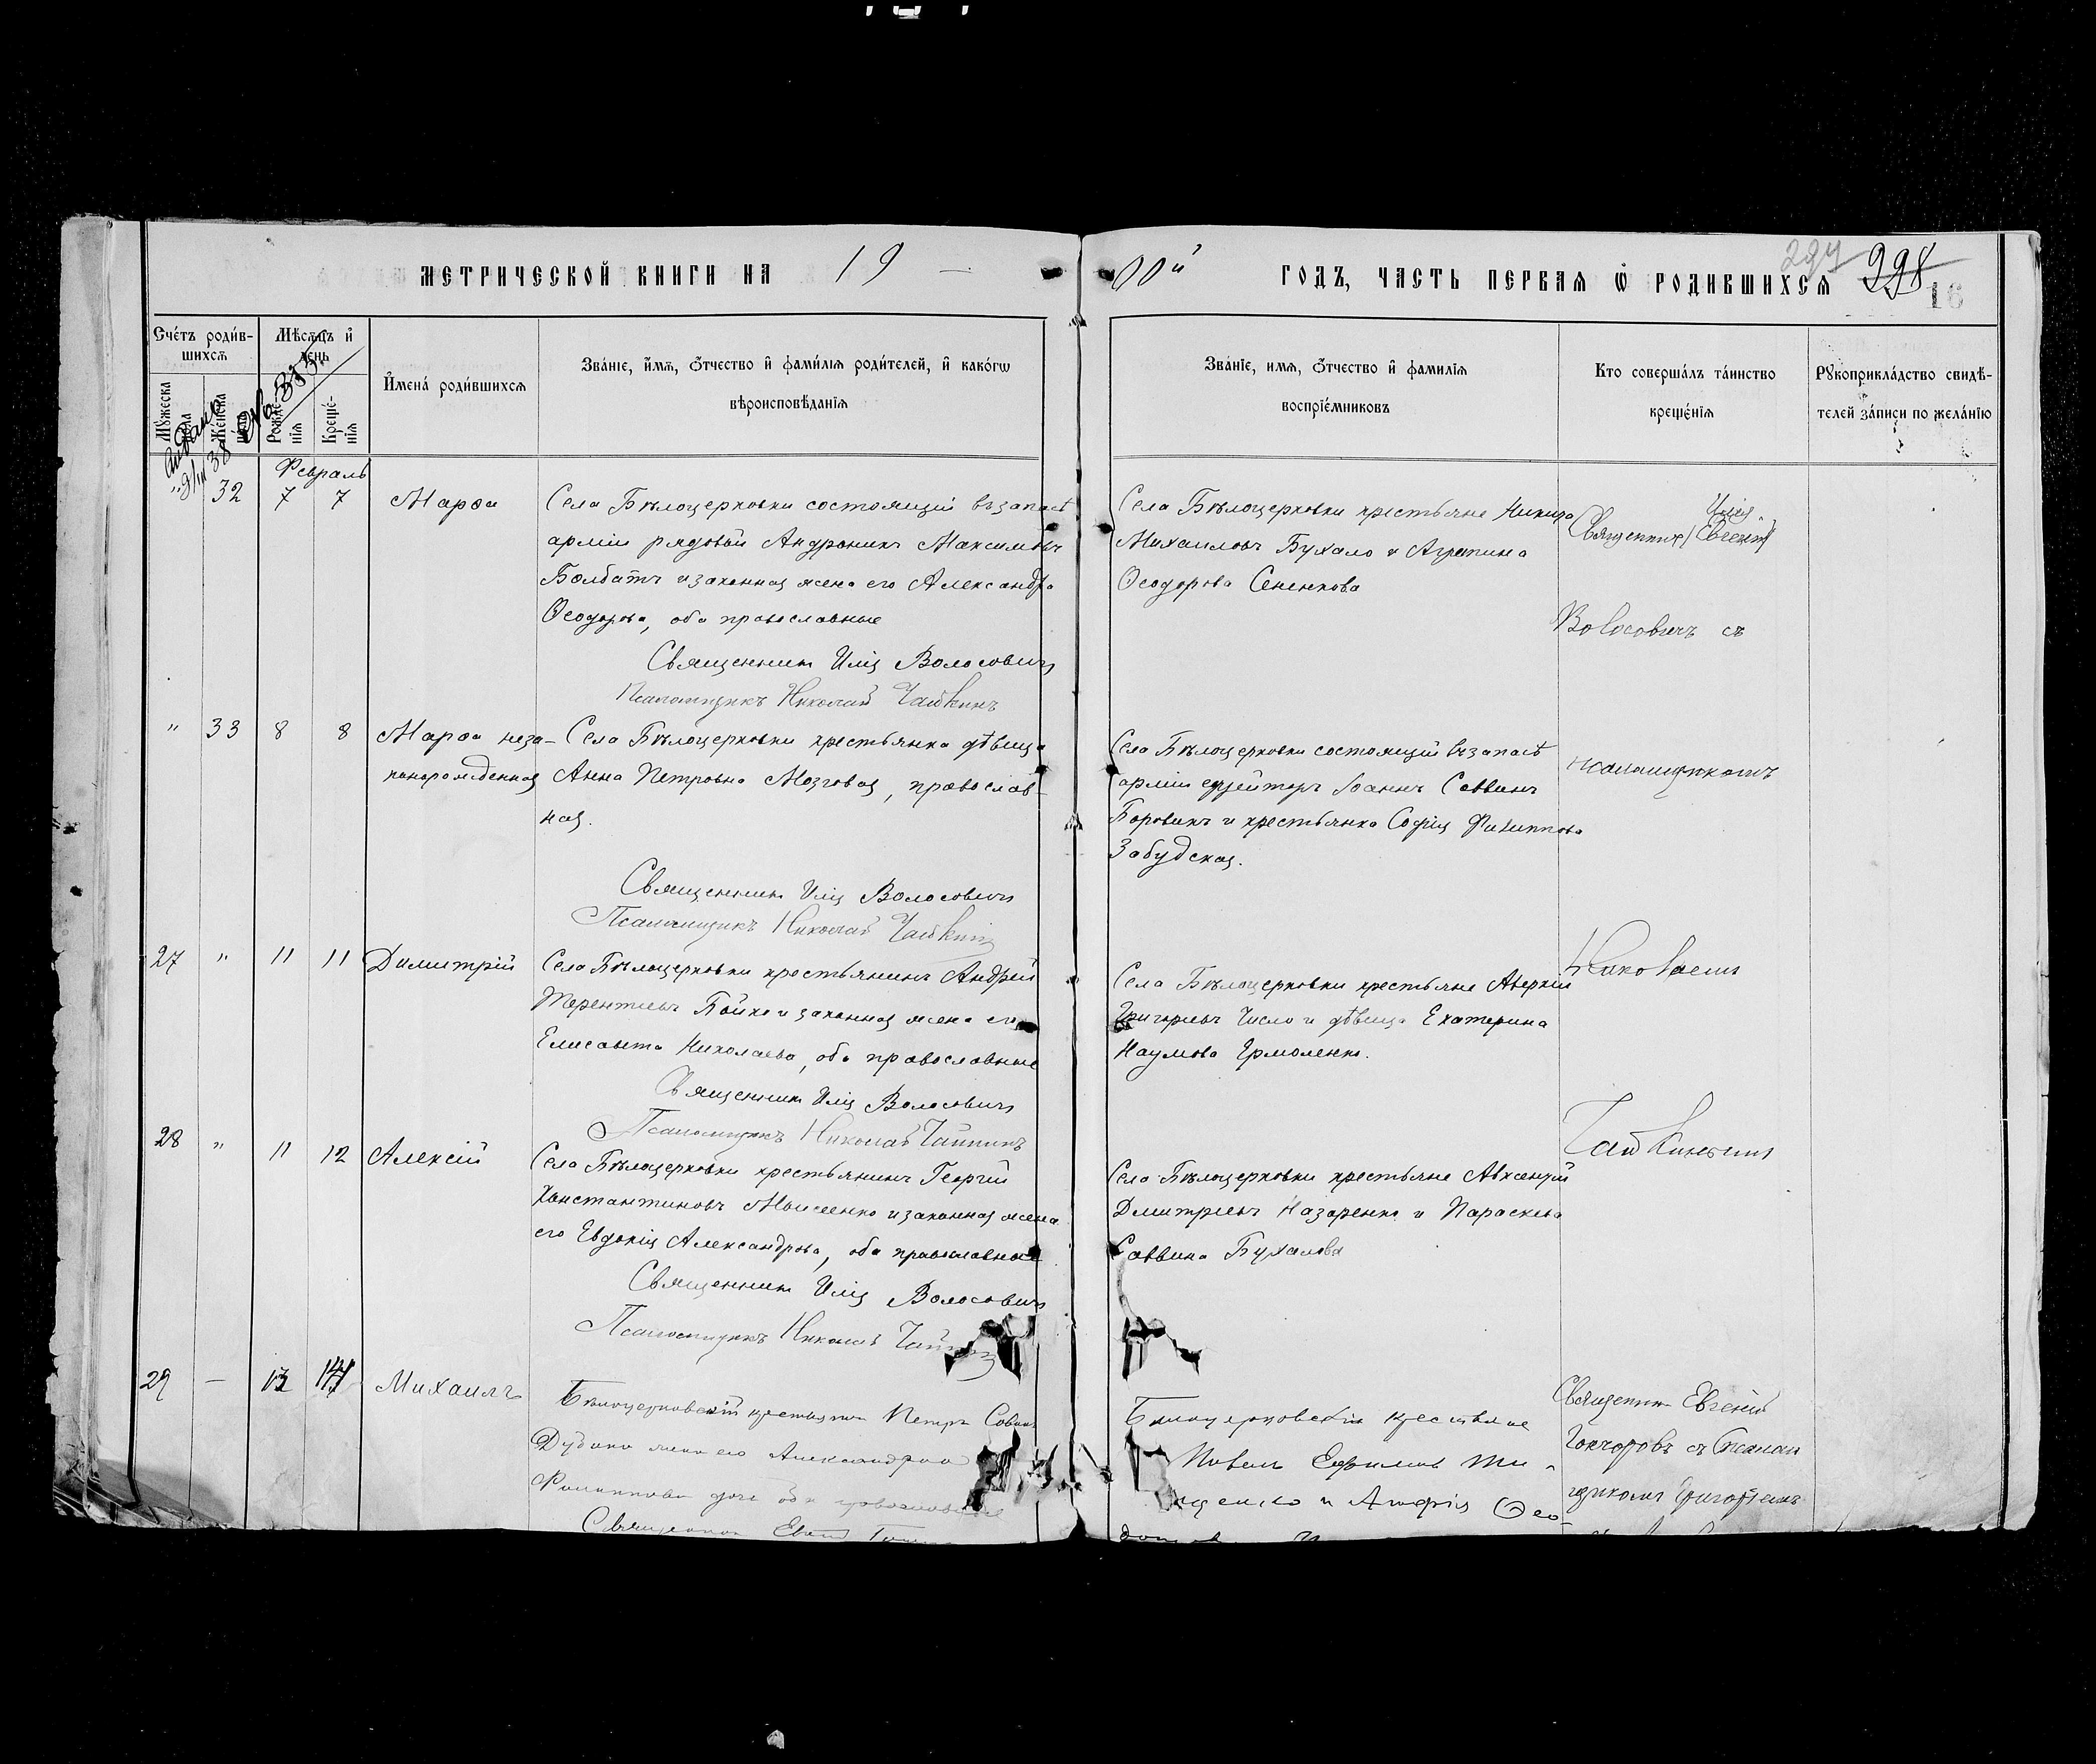 МЕТРИЧЕСКОЙ КНИГИ НА 19
00й ГОДЪ, ЧАСТЬ ПЕРВАЯ Ѡ РОДИВШИХСЯ
299 298
16
Счéтъ роди́в-
шихсѧ
Мꙋжеска
пола
Же́нска
Мѣсѧцъ и҆
день
Рожде-
нїѧ
Креще́-
нїѧ
И҆мена́ роди́вшихсѧ
Зва́нїе, и҆́мѧ, ѻ҆́тчество и҆ фами́лїѧ роди́телей, и҆ како́гѡ
вѣроисповѣ́данїѧ
Зва́нїе, имѧ, ѻ҆́тчество и҆ фамилїѧ
воспрїе́мниковъ
Кто соверша́лъ та́инство
креще́нїѧ
Рꙋкоприкла́дство свидѣ́-
телей за́писи по жела́нїю
Февраль
" 32 7 7 Марѳа
Села Бѣлоцерковки состоящій въ запасѣ
арміи рядовой Андроникъ Максимовъ
Болбатъ и законная жена его Александра
Ѳеодорова, оба православные
Священникъ Илія Волосовичъ
Псаломщикъ Николай Чайкинъ
Села Бѣлоцерковки крестьяне Никита
Михаиловъ Бухало и Агрипина
Ѳеодорова Сененкова
Священникъ Илія
Евгеній
Волосовичъ съ
" 33 8 8 Марѳа неза-
коннорожденная
Села Бѣлоцерковки крестьянка дѣвица
Анна Петровна Мозговая, православ-
ная.
Священникъ Илія Волосовичъ
Псаломщикъ Николай Чайкинъ
Села Бѣлоцерковки состоящій въ запасѣ
арміи ефрейторъ Іоаннъ Саввинъ
Боровикъ и крестьянка Софія Филиппова
Забудская.
псаломщикомъ
27 " 11 11 Димитрій
Села Бѣлоцерковки крестьянинъ Андрей
Терентіевъ Бойко и законная жена его
Елисавета Николаева, оба православные
Священникъ Илія Волосовичъ
Псаломщикъ Николай Чайкинъ
Села Бѣлоцерковки крестьяне Аверкій
Григорьевъ Число и дѣвица Екатерина
Наумова Ермоленко.
Николаемъ
28 " 11 12 Алексій
Села Бѣлоцерковки крестьянинъ Георгій
Константиновъ Моисеенко и законная жена
его Евдокія Александрова, оба православные
Священникъ Илія Волосовичъ
Псаломщикъ Николай
Села Бѣлоцерковки крестьяне Авксентій
Димитріевъ Назаренко и Параскева
Саввина Бухалова
Чайкинымъ
29 — 13 Михаилъ
Бѣлоцерковскій крестьянинъ Петръ Саввинъ
жена его Александра
Филиппова оба православные
Священникъ
Бѣлоцерковскіе крестьяне
Павелъ Ефимовъ Ти-
щенко и Ѳео-
Священникъ Евгеній
Гончаровъ съ Псалом
щикомъ Григоріемъ